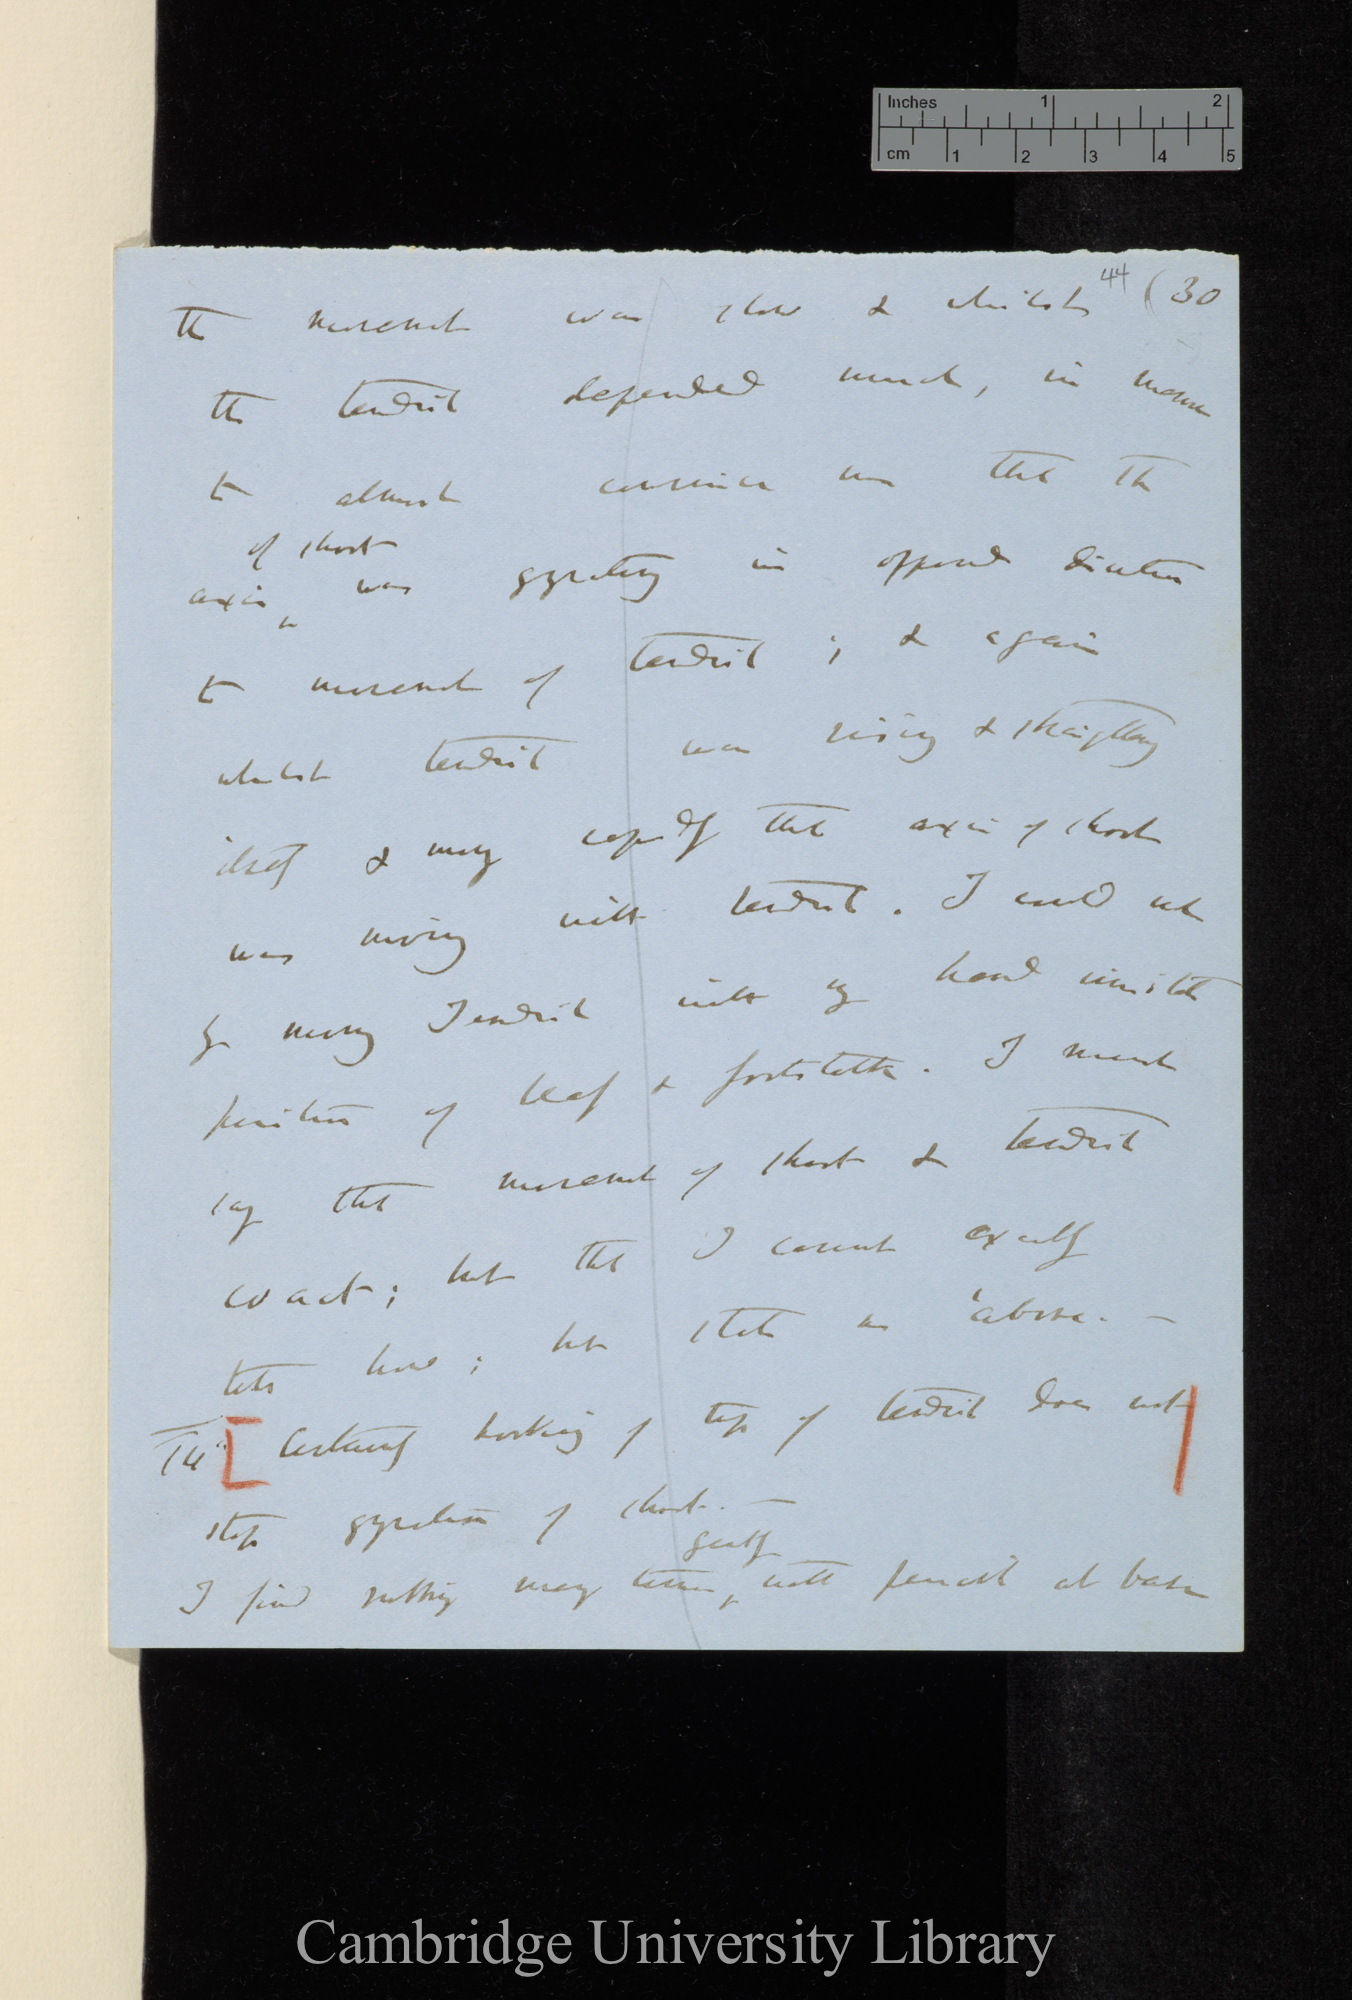 Inches 1 2
cm 1 2 3 4 5
44 (30
the movement was slow & whilst
the tendril depended much, in manner
to almost convince me that the
of shoot
axis ^ was gyrating in opposed direction
to movement of tendril; & again
whilst tendril was rising & straightening
itself & moving rapidly that axis of shoot
was moving with tendril. I could not
by moving Tendril with my hand imitate
position of leaf & footstalk. I must
say that movement of shoot & tendril
coact; but that I cannot exactly
how; but state as above. —
[Certainly hooking of top of tendril does not
stop gyration of shoot. —
gently
I find rubbing with pencil at base
Cambridge University Library